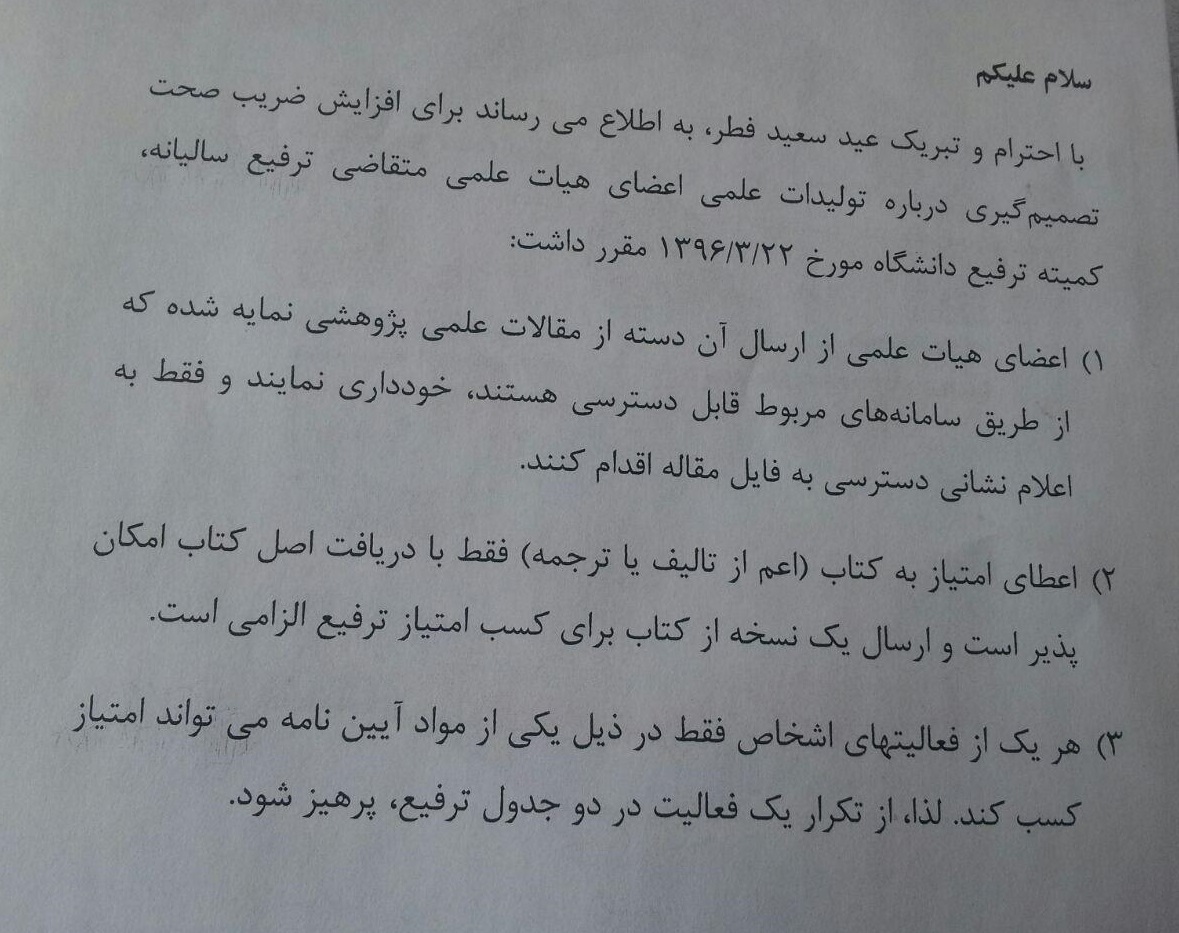 سلام علیکم
با احترام و تبریک عید سعید فطر، به اطلاع می رساند برای افزایش ضریب صحت
تصمیم‌گیری درباره تولیدات علمی اعضای هیات علمی متقاضی ترفیع سالیانه،
کمیته ترفیع دانشگاه مورخ ۱۳۹۶/۳/۲۲ مقرر داشت:
۱) اعضای هیات علمی از ارسال آن دسته از مقالات علمی پژوهشی نمایه شده که
از طریق سامانه‌های مربوط قابل دسترسی هستند، خودداری نمایند و فقط به
اعلام نشانی دسترسی به فایل مقاله اقدام کنند.
۲) اعطای امتیاز به کتاب (اعم از تالیف یا ترجمه) فقط با دریافت اصل کتاب امکان
پذیر است و ارسال یک نسخه از کتاب برای کسب امتیاز ترفیع الزامی است.
۳) هر یک از فعالیتهای اشخاص فقط در ذیل یکی از مواد آیین نامه می تواند امتیاز
کسب کند. لذا، از تکرار یک فعالیت در دو جدول ترفیع، پرهیز شود.